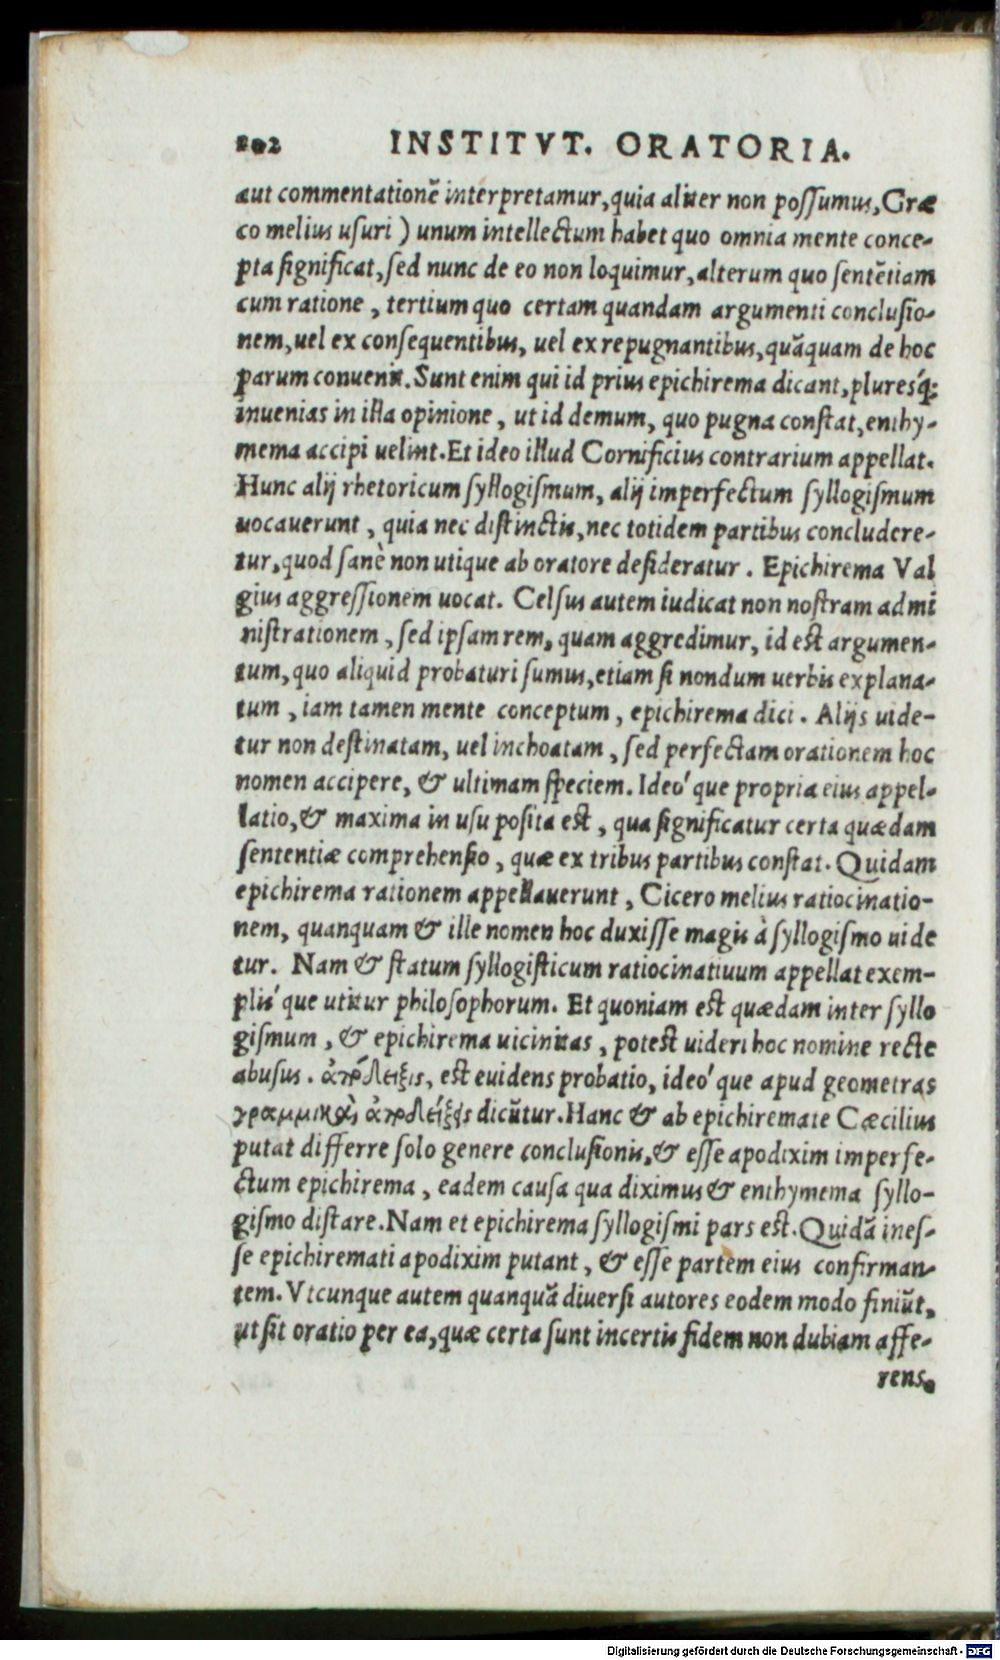 202 INSTITVT. ORATORIA.
aut commentationē interpretamur, quia aliter non possumus, Græ
co melius usuri ) unum intellectum habet quo omnia mente conce-
pta significat, sed nunc de eo non loquimur, alterum quo sentētiam
cum ratione, tertium quo certam quandam argumenti conclusio-
nem, uel ex consequentibus, uel ex repugnantibus, quāquam de hoc
parum conuenit. Sunt enim qui id prius epichirema dicant, pluresq́;
inuenias in illa opinione, ut id demum, quo pugna constat, enthy-
mema accipi uelint. Et ideo illud Cornificius contrarium appellat.
Hunc alij rhetoricum syllogismum, alij imperfectum syllogismum
uocauerunt, quia nec distinctis, nec totidem partibus concludere-
tur, quod sanè non utique ab oratore desideratur. Epichirema Val
gius aggressionem uocat. Celsus autem iudicat non nostram admi
nistrationem, sed ipsam rem, quam aggredimur, id est argumen-
tum, quo aliquid probaturi sumus, etiam si nondum uerbis explana-
tum, iam tamen mente conceptum, epichirema dici. Alijs uide-
tur non destinatam, uel inchoatam, sed perfectam orationem hoc
nomen accipere, & ultimam speciem. Ideo´que propria eius appel-
latio, & maxima in usu posita est, qua significatur certa quædam
sententiæ comprehensio, quæ ex tribus partibus constat. Quidam
epichirema rationem appellauerunt, Cicero melius ratiocinatio-
nem, quanquam & ille nomen hoc duxisse magis à syllogismo uide
tur. Nam & statum syllogisticum ratiocinatiuum appellat exem-
plis´que utitur philosophorum. Et quoniam est quædam inter syllo
gismum, & epichirema uicinitas, potest uideri hoc nomine recte
abusus. ἀπόδειξις, est euidens probatio, ideo´que apud geometras
γραμμικαὶ ἀποδείξεις dicūtur. Hanc & ab epichiremate Cæcilius
putat differre solo genere conclusionis, & esse apodixim imperfe-
ctum epichirema, eadem causa qua diximus & enthymema syllo-
gismo distare. Nam et epichirema syllogismi pars est. Quidā ines-
se epichiremati apodixim putant, & esse partem eius confirman-
tem. Vtcunque autem quanquā diuersi autores eodem modo finiūt,
ut sit oratio per ea, quæ certa sunt incertis fidem non dubiam affe-
rens.
Digitalisierung gefördert durch die Deutsche Forschungsgemeinschaft - DFG